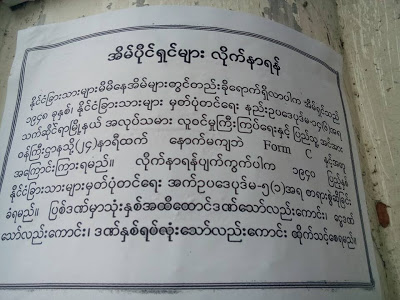 အိမ်ပိုင်ရှင်များ လိုက်နာရန်
နိုင်ငံခြားသားများမိမိနေအိမ်များတွင်တည်းခိုရောက်ရှိလာပါက အိမ်ရှင်သည်
၁၉၄၈ ခုနှစ်၊ နိုင်ငံခြားသားများ မှတ်ပုံတင်ရေး နည်းဥပဒေပုဒ်မ-၁၄(၆)အရ
သက်ဆိုင်ရာမြို့နယ် အလုပ်သမား၊ လူဝင်မှုကြီးကြပ်ရေးနှင့် ပြည်သူ့ အင်အား
ဝန်ကြီးဌာနသို့(၂၄)နာရီထက် နောက်မကျဘဲ Form C နှင့်အတူ
အကြောင်းကြားရမည်။ လိုက်နာရန်ပျက်ကွက်ပါက ၁၉၄၀ ပြည့်နှစ်
နိုင်ငံခြားသားများမှတ်ပုံတင်ရေး အက်ဥပဒေပုဒ်မ-၅(၁)အရ တရားစွဲဆိုခြင်း
ခံရမည်။ ပြစ်ဒဏ်မှာသုံးနှစ်အထိထောင်ဒဏ်သော်လည်းကောင်း၊ ငွေဒဏ်
သော်လည်းကောင်း၊ ဒဏ်နှစ်ရပ်လုံးသော်လည်းကောင်း ထိုက်သင့်စေရမည်။